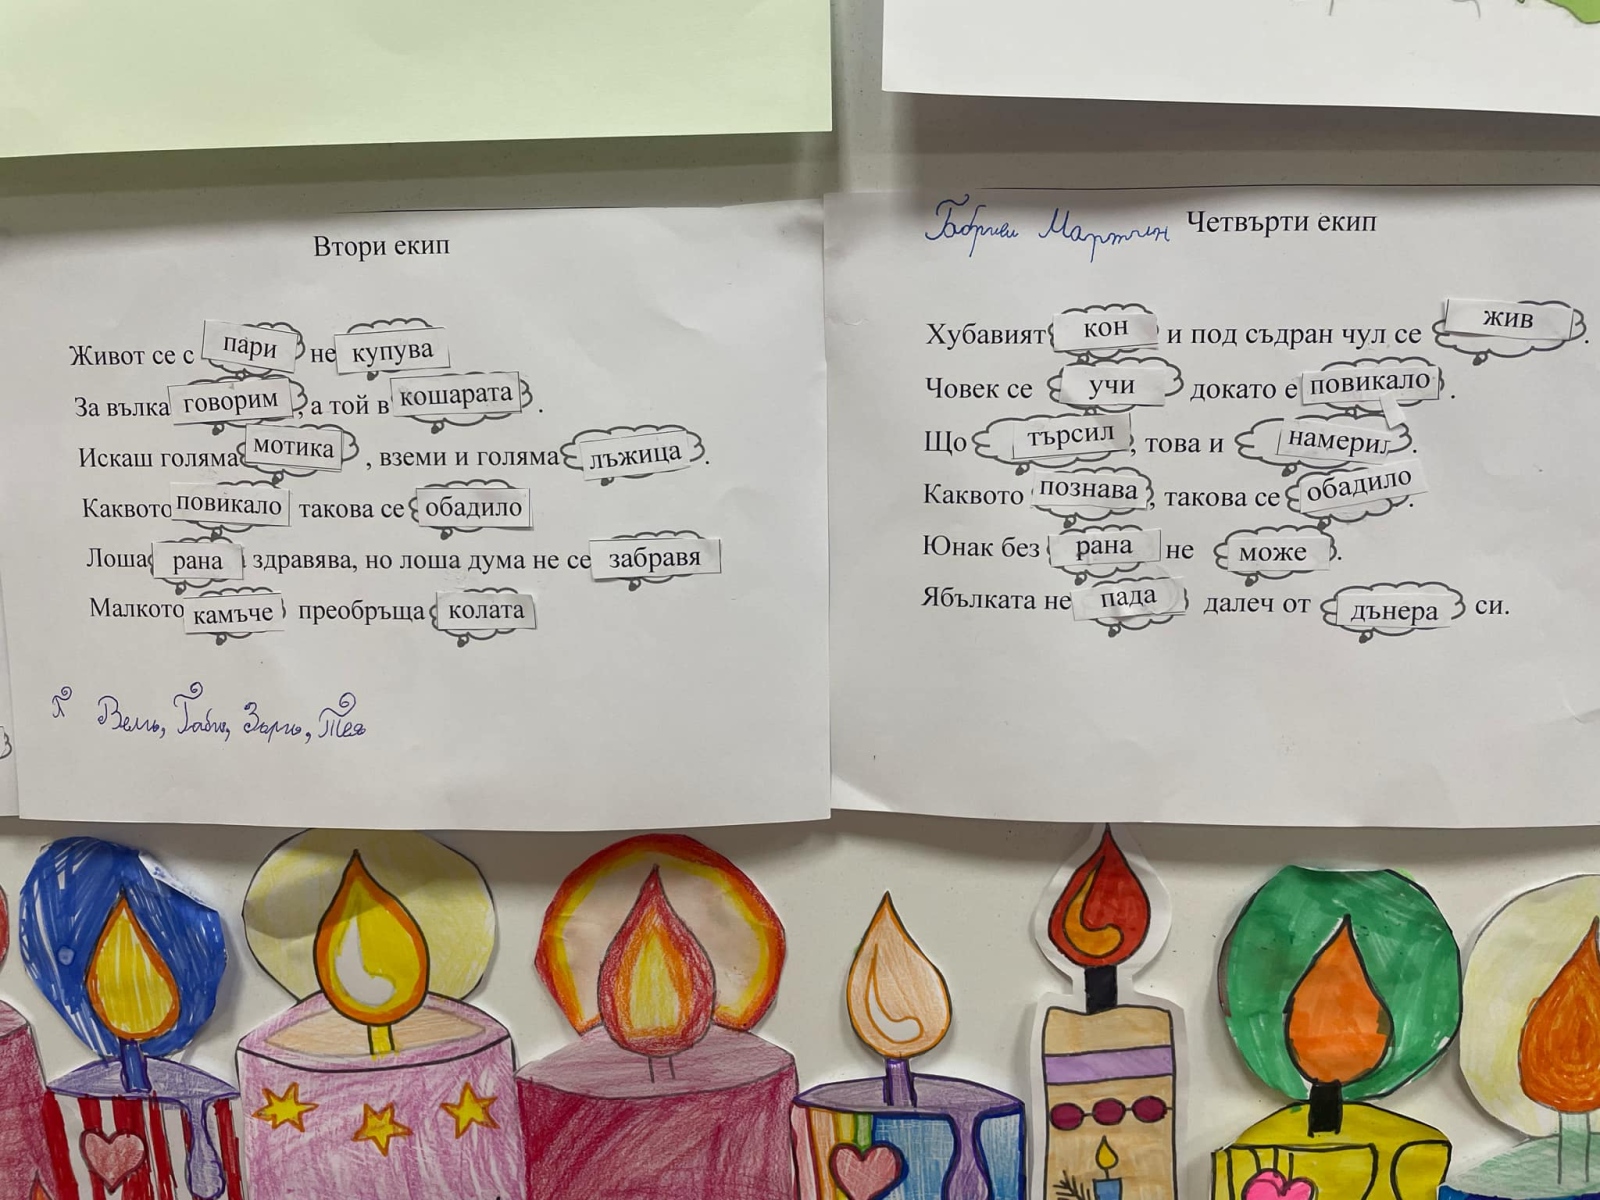 Втори екип
Живот се с пари не купува
За вълка говорим, а той в кошарата.
Искаш голяма мотика, вземи и голяма лъжица.
Каквото повикало такова се обадило
Лоша рана здравява, но лоша дума не се забравя
Малкото камъче преобръща колата
Габи, Тея
Габриел Мартин Четвърти екип
Хубавият кон и под съдран чул се жив.
Човек се учи докато е повикало.
Що търсил, това и намерил.
Каквото познава, такова се обадило.
Юнак без рана не може.
Ябълката не пада далеч от дънера си.